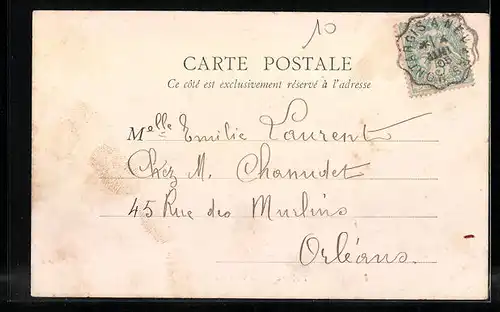 10
CARTE POSTALE
Ce côté est exclusivement réservé à l'adresse
Melle Emilie Laurent
Chez M. Chanudet
45 Rue des Murlins
Orléans.